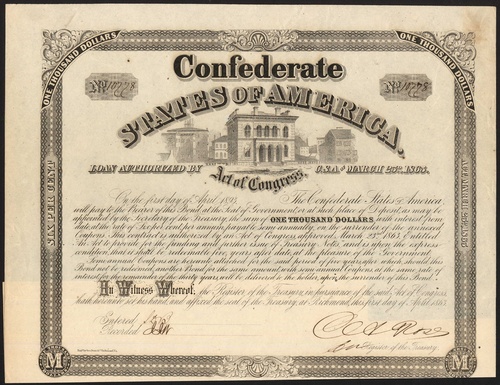 ONE THOUSAND DOLLARS
ONE THOUSAND DOLLARS
Confederate
STATES OF AMERICA,
LOAN AUTHORIZED BY
C.S.A. OF MARCH 23RD, 1863.
Act of Congress,
SIX PER CENT
On the first day of April 1893, The Confederate States of America,
will pay to the Bearer of this Bond, at the Seat of Government, or at such place of Deposit as may be
appointed by the Secretary of the Treasury, the sum of ONE THOUSAND DOLLARS with interest from
date, at the rate of Six per cent per annum, payable semi annually, on the surrender of the annexed
Coupon. This contract is authorized by an Act of Congress approved March 23rd 1863 Entitled
An Act to provide for the funding and further issue of Treasury Notes, and is upon the express
condition, that
five years after date, at the pleasure of the Government.
Semi annual Coupons are hereunto attached for the said period of five years after which should this
Bond not be redeemed another Bond for the same amount, with semi annual Coupons at the same rate of
interest for the remainder of the thirty years will be delivered to the holder, upon the surrender of this Bond.
In Witness Whereof, the Register of the Treasury, in pursuance of the said Act of Congress,
hath hereunto set his hand, and affixed the seal of the Treasury, at Richmond, this first day of April 1863.
Entered
Recorded
Register of the Treasury.
M
M